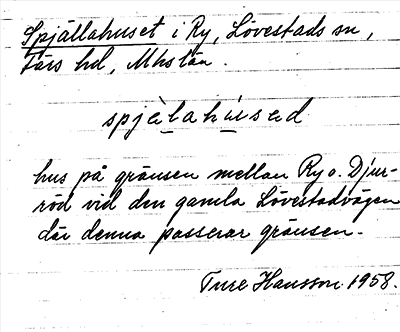 Spjällahuset i Ry, Lövestads sn,
Färs hd, Mhslän.
spjälahúsəd
hus på gränsen mellan Ry o. Djur-
röd vid den gamla Lövestadvägen
där denna passerar gränsen.
Ture Hansson 1958.